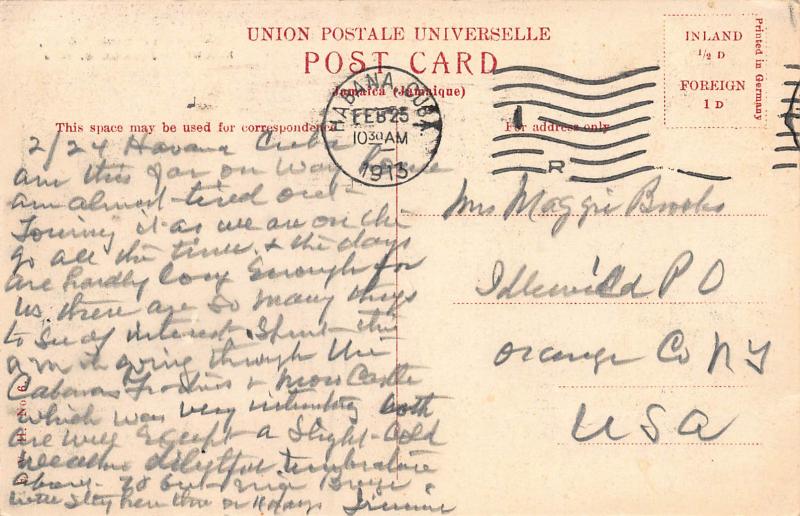 UNION POSTALE UNIVERSELLE
POST CARD
Jamaica (Jamaïque)
INLAND
½ D
FOREIGN
1 D
Printed in Germany
HABANA, CUBA
FEB 25
10 30 AM
1913
R
This space may be used for correspondence
For address only
2/24 Havana Cuba
am this far on way home
am almost tired out
Touring it as we are on the
go all the time & the days
are hardly long Enough for
us there are so many things
to See of interest. Spent this
a m in going through the
Cabanas & Moro Castle
which was very intersting both
are well Except a Slight Cold
weather temperature
78 but nice Breeze
will Stay here three or 4 days
Mrs Maggie Brooks
Idlewild P O
Orange Co N Y
U S A
No. 6.